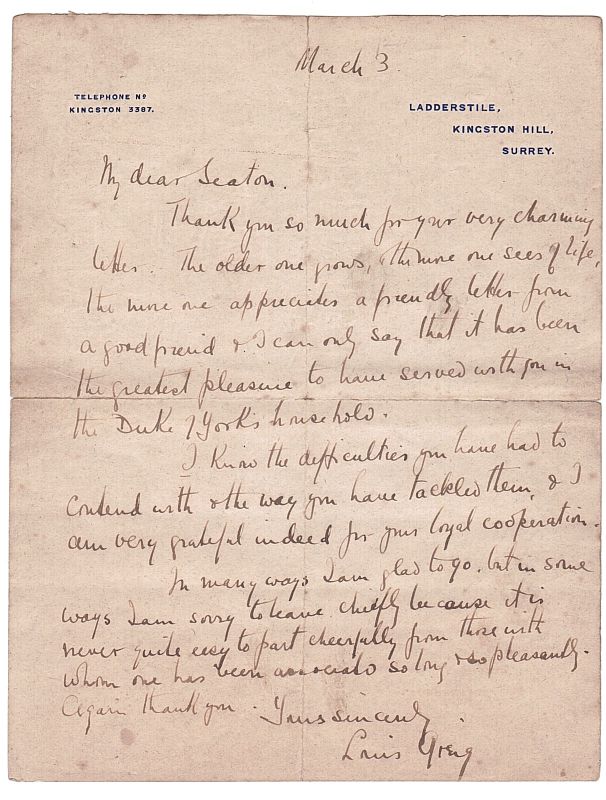 March 3.
TELEPHONE Nº
KINGSTON 3387.
LADDERSTILE,
KINGSTON HILL,
SURREY.
My dear Seaton.
Thank you so much for your very charming
letter. The older one grows, & the more one sees of life,
the more one appreciates a friendly letter from
a good friend & I can only say that it has been
the greatest pleasure to have served with you in
the Duke of York's household.
I know the difficulties you have had to
contend with & the way you have tackled them, & I
am very grateful indeed for your loyal cooperation.
In many ways I am glad to go, but in some
ways I am sorry to leave chiefly because it is
never quite easy to part cheerfully from those with
whom one has been associated so long & so pleasantly.
Again thank you. Yours sincerely
Louis Greig